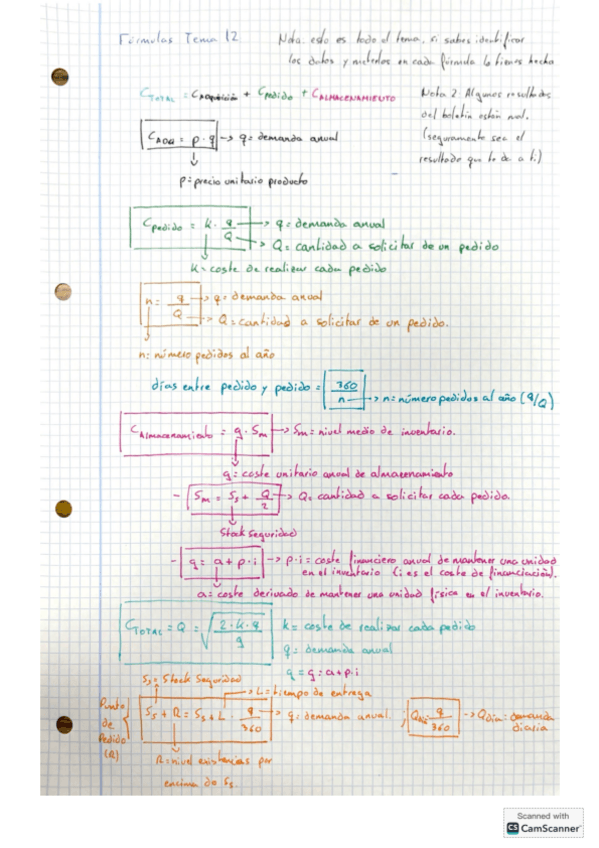 Fórmulas Tema 12
Nota: esto es todo el tema, si sabes identificar
los datos y meterlos en cada fórmula lo tienes hecho
C TOTAL = C Adquisición + C Pedido + C ALMACENAMIENTO
Nota 2: Algunos resultados
del boletín están mal.
(seguramente sea el
resultado que te de a ti)
C ADQ = p · q → q = demanda anual
p = precio unitario producto
C pedido = k · q/Q → q = demanda anual
→ Q = cantidad a solicitar de un pedido
k = coste de realizar cada pedido
n = q/Q → q = demanda anual
→ Q = cantidad a solicitar de un pedido.
n: número pedidos al año
días entre pedido y pedido = 360/n → n = número pedidos al año (q/Q)
C Almacenamiento = g · Sm → Sm = nivel medio de inventario.
g = coste unitario anual de almacenamiento
- Sm = Ss + Q/2 → Q = cantidad a solicitar cada pedido
Stock Seguridad
- g = a + p · i → p · i = coste financiero anual de mantener una unidad
en el inventario (i es el coste de financiación).
a = coste derivado de mantener una unidad física en el inventario.
C TOTAL = Q = √(2 · k · q / g)
k = coste de realizar cada pedido
q = demanda anual
g = g = a + p · i
Ss = Stock Seguridad
→ L = tiempo de entrega
Punto de Pedido (R) { Ss + R = Ss + L · q/360 → q = demanda anual. ; Q día = q/360 → Q día = demanda diaria
R = nivel existencias por
encima de Ss.
Scanned with
CS CamScanner